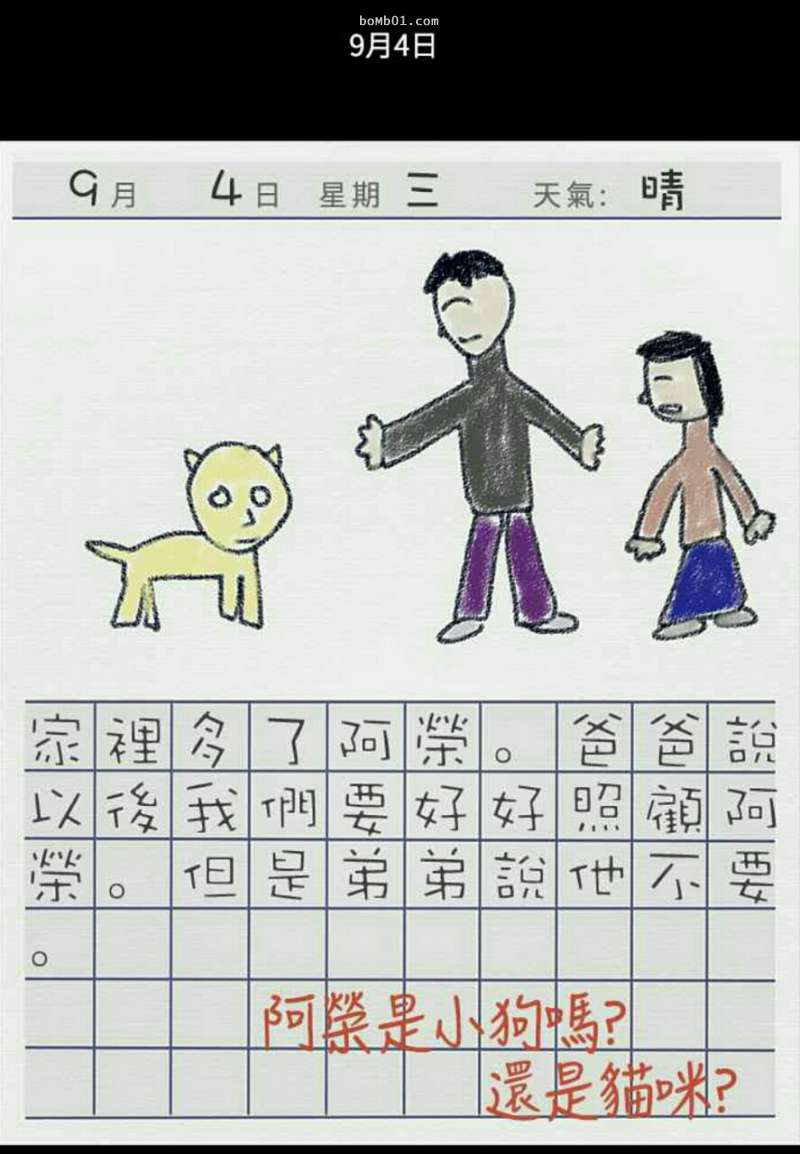 boMb01.com
9月4日
9月 4日 星期三 天氣: 晴
家裡多了阿榮。爸爸說
以後我們要好好照顧阿
榮。但是弟弟說他不要
。
阿榮是小狗嗎?
還是貓咪?